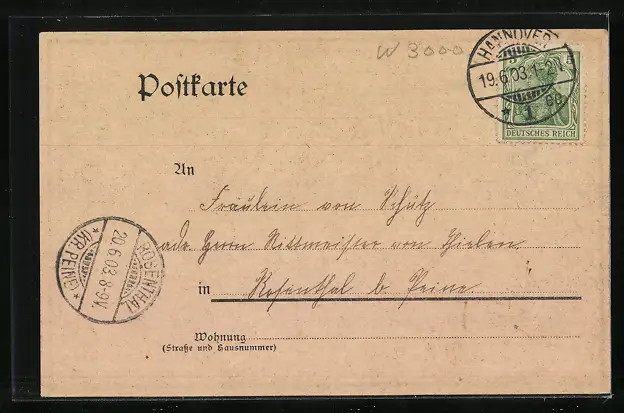 W 3000
HANNOVER
19.6.03.1-2N.
* 1 gg
5 5
DEUTSCHES REICH
Poſtkarte
An
Fräulein von Schütz
adr Herrn Rittmeister von Thielen
in Rosenthal b Peine
ROSENTHAL
20.6.03.8-9V.
* (KR. PEINE) *
Wohnung
(Straße und Hausnummer)